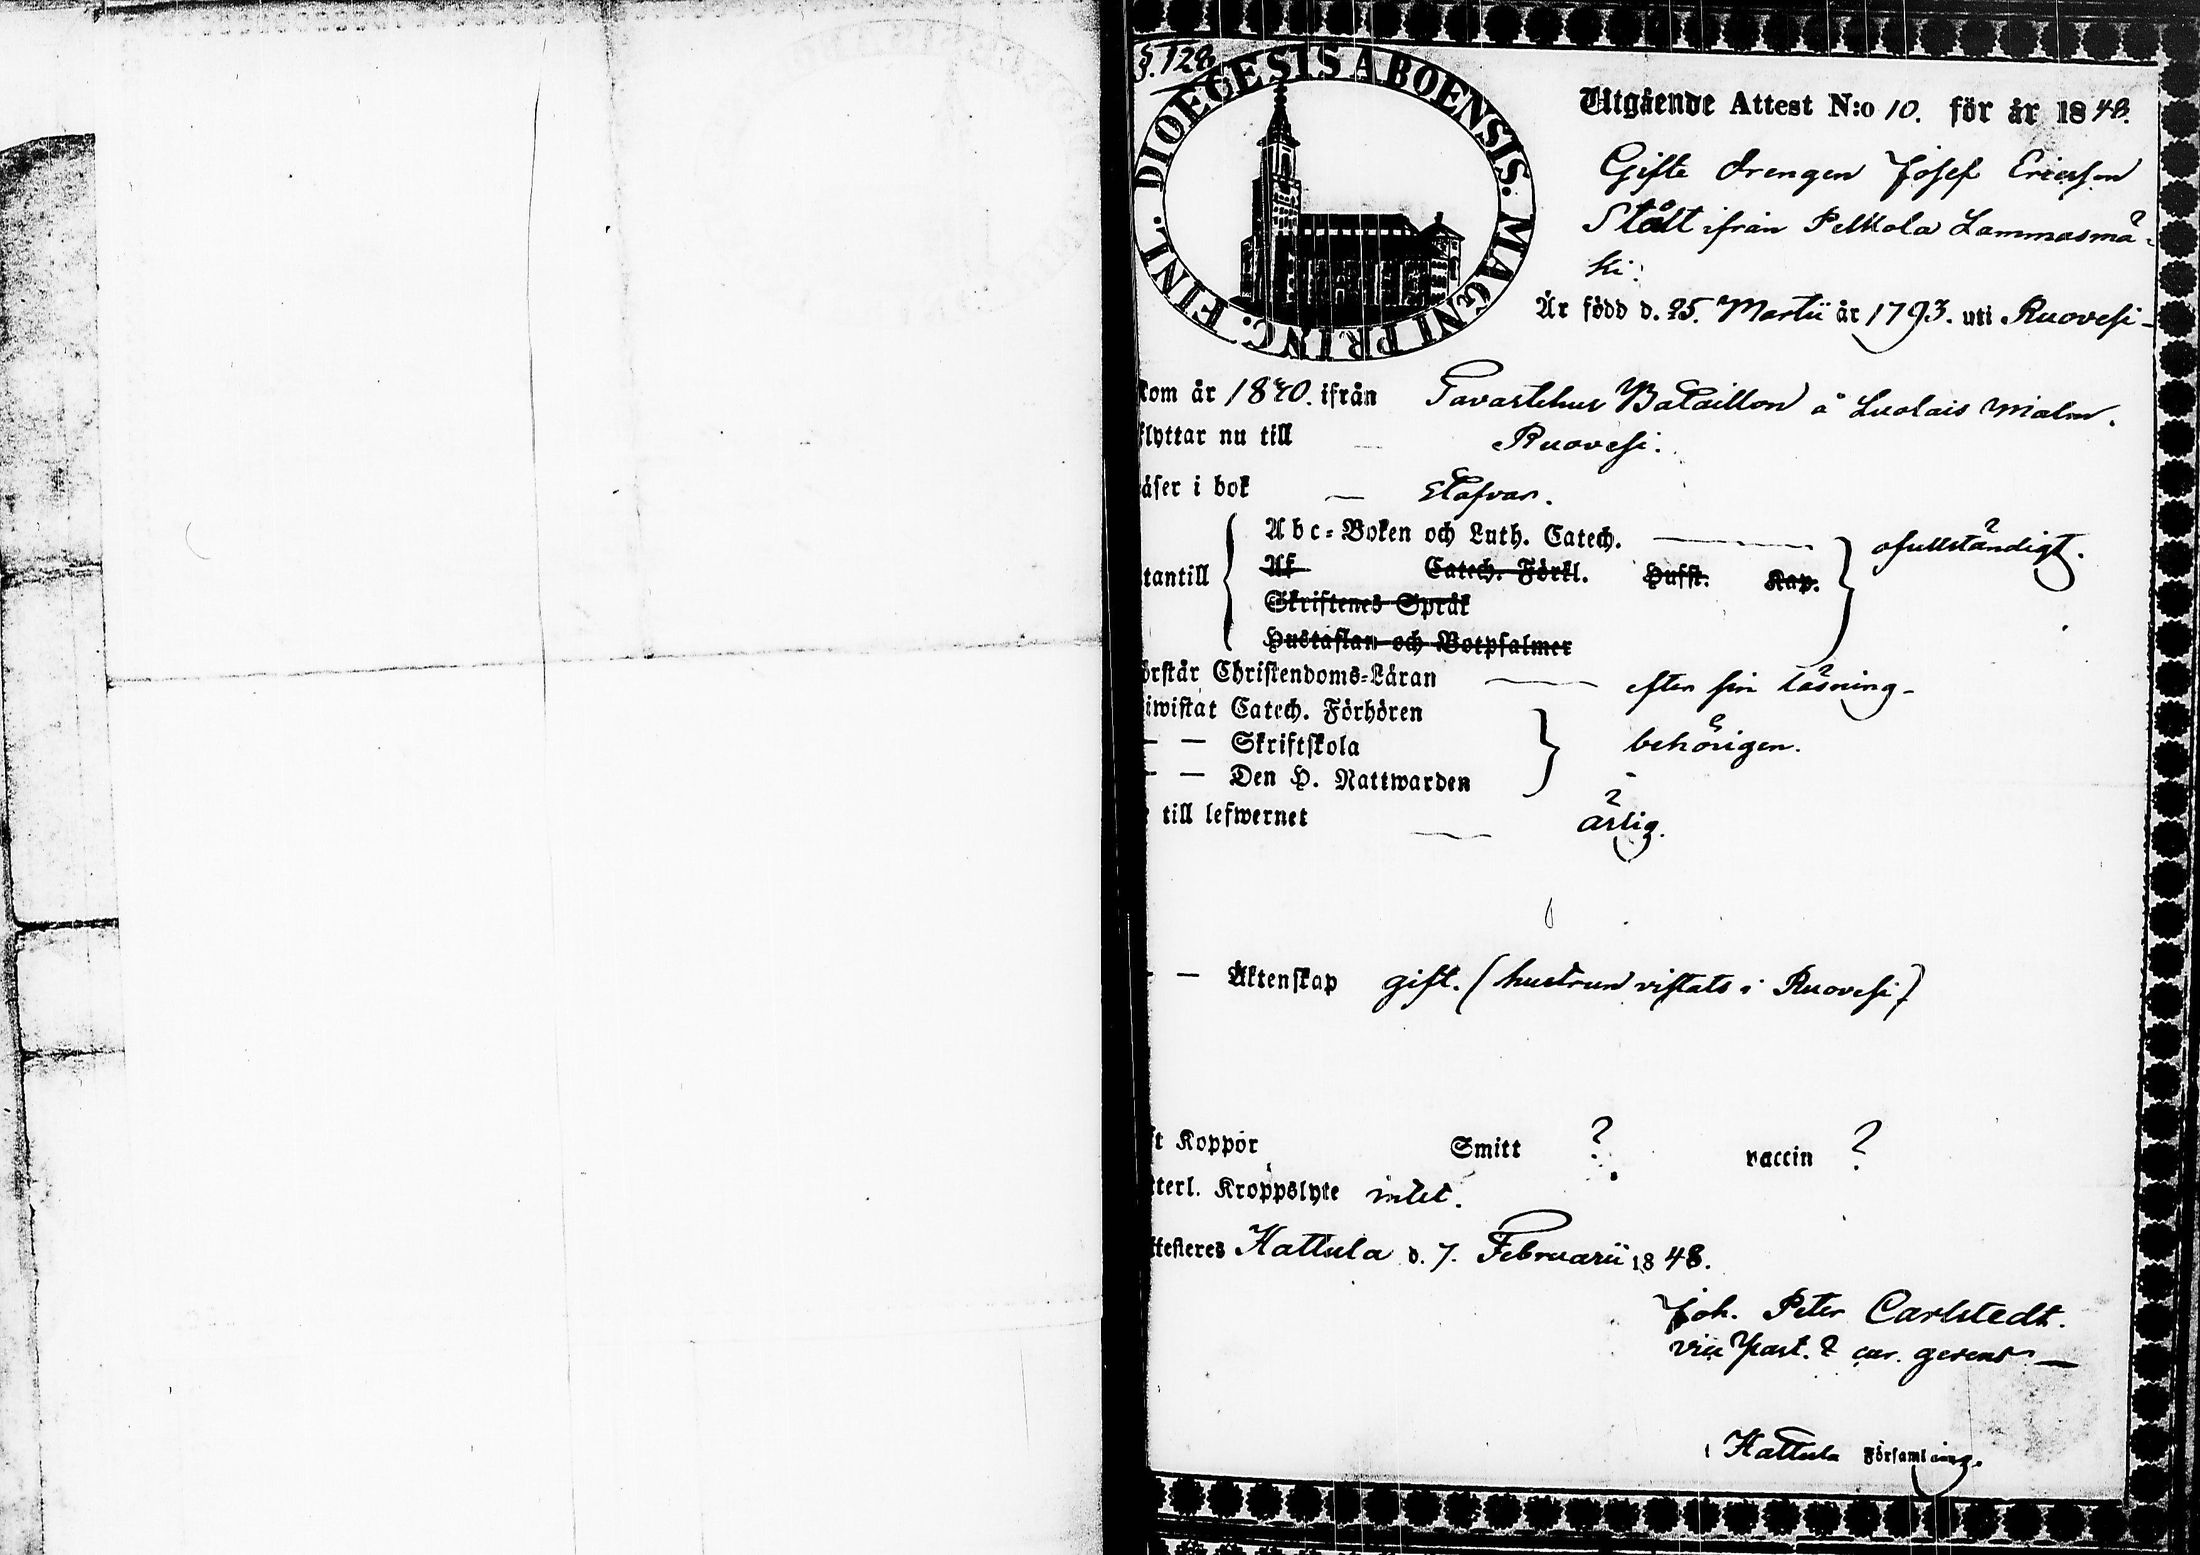 §. 128
DIOECESIS ABOENSIS. MAGNI PRINC. FINL.
Utgående Attest N:o 10. för år 1848.
Gifte drengen Josef Ericsson
Stålt ifrån Pelkola Lammasmä-
ki.
Är född d. 25. Martii år 1793. uti Ruovesi
kom år 1840. ifrån Tavastehus Bataillon å Luolais malm.
flyttar nu till Ruovesi.
äser i bok — stafvar.
Abc-Boken och Luth. Catech. ofullständigt.
tantill Af Catech. Förkl. Hufst. Kap.
Skriftenes Språk
Hustaflan och Botpsalmer
örstår Christendoms-Läran — efter sin läsning
iwistat Catech. Förhören
— — Skriftskola behörigen.
— — Den H. Nattwarden
till lefwernet — ärlig.
— — Äktenskap gift. (hustrun vistats i Ruovesi)
ft Koppor Smitt ? vaccin ?
tterl. Kroppslyte intet.
ttesteres Hattula d. 7. Februarii 1848.
Joh. Peter Carlstedt.
vice Past. & cur. gerens
i Hattula Församling.